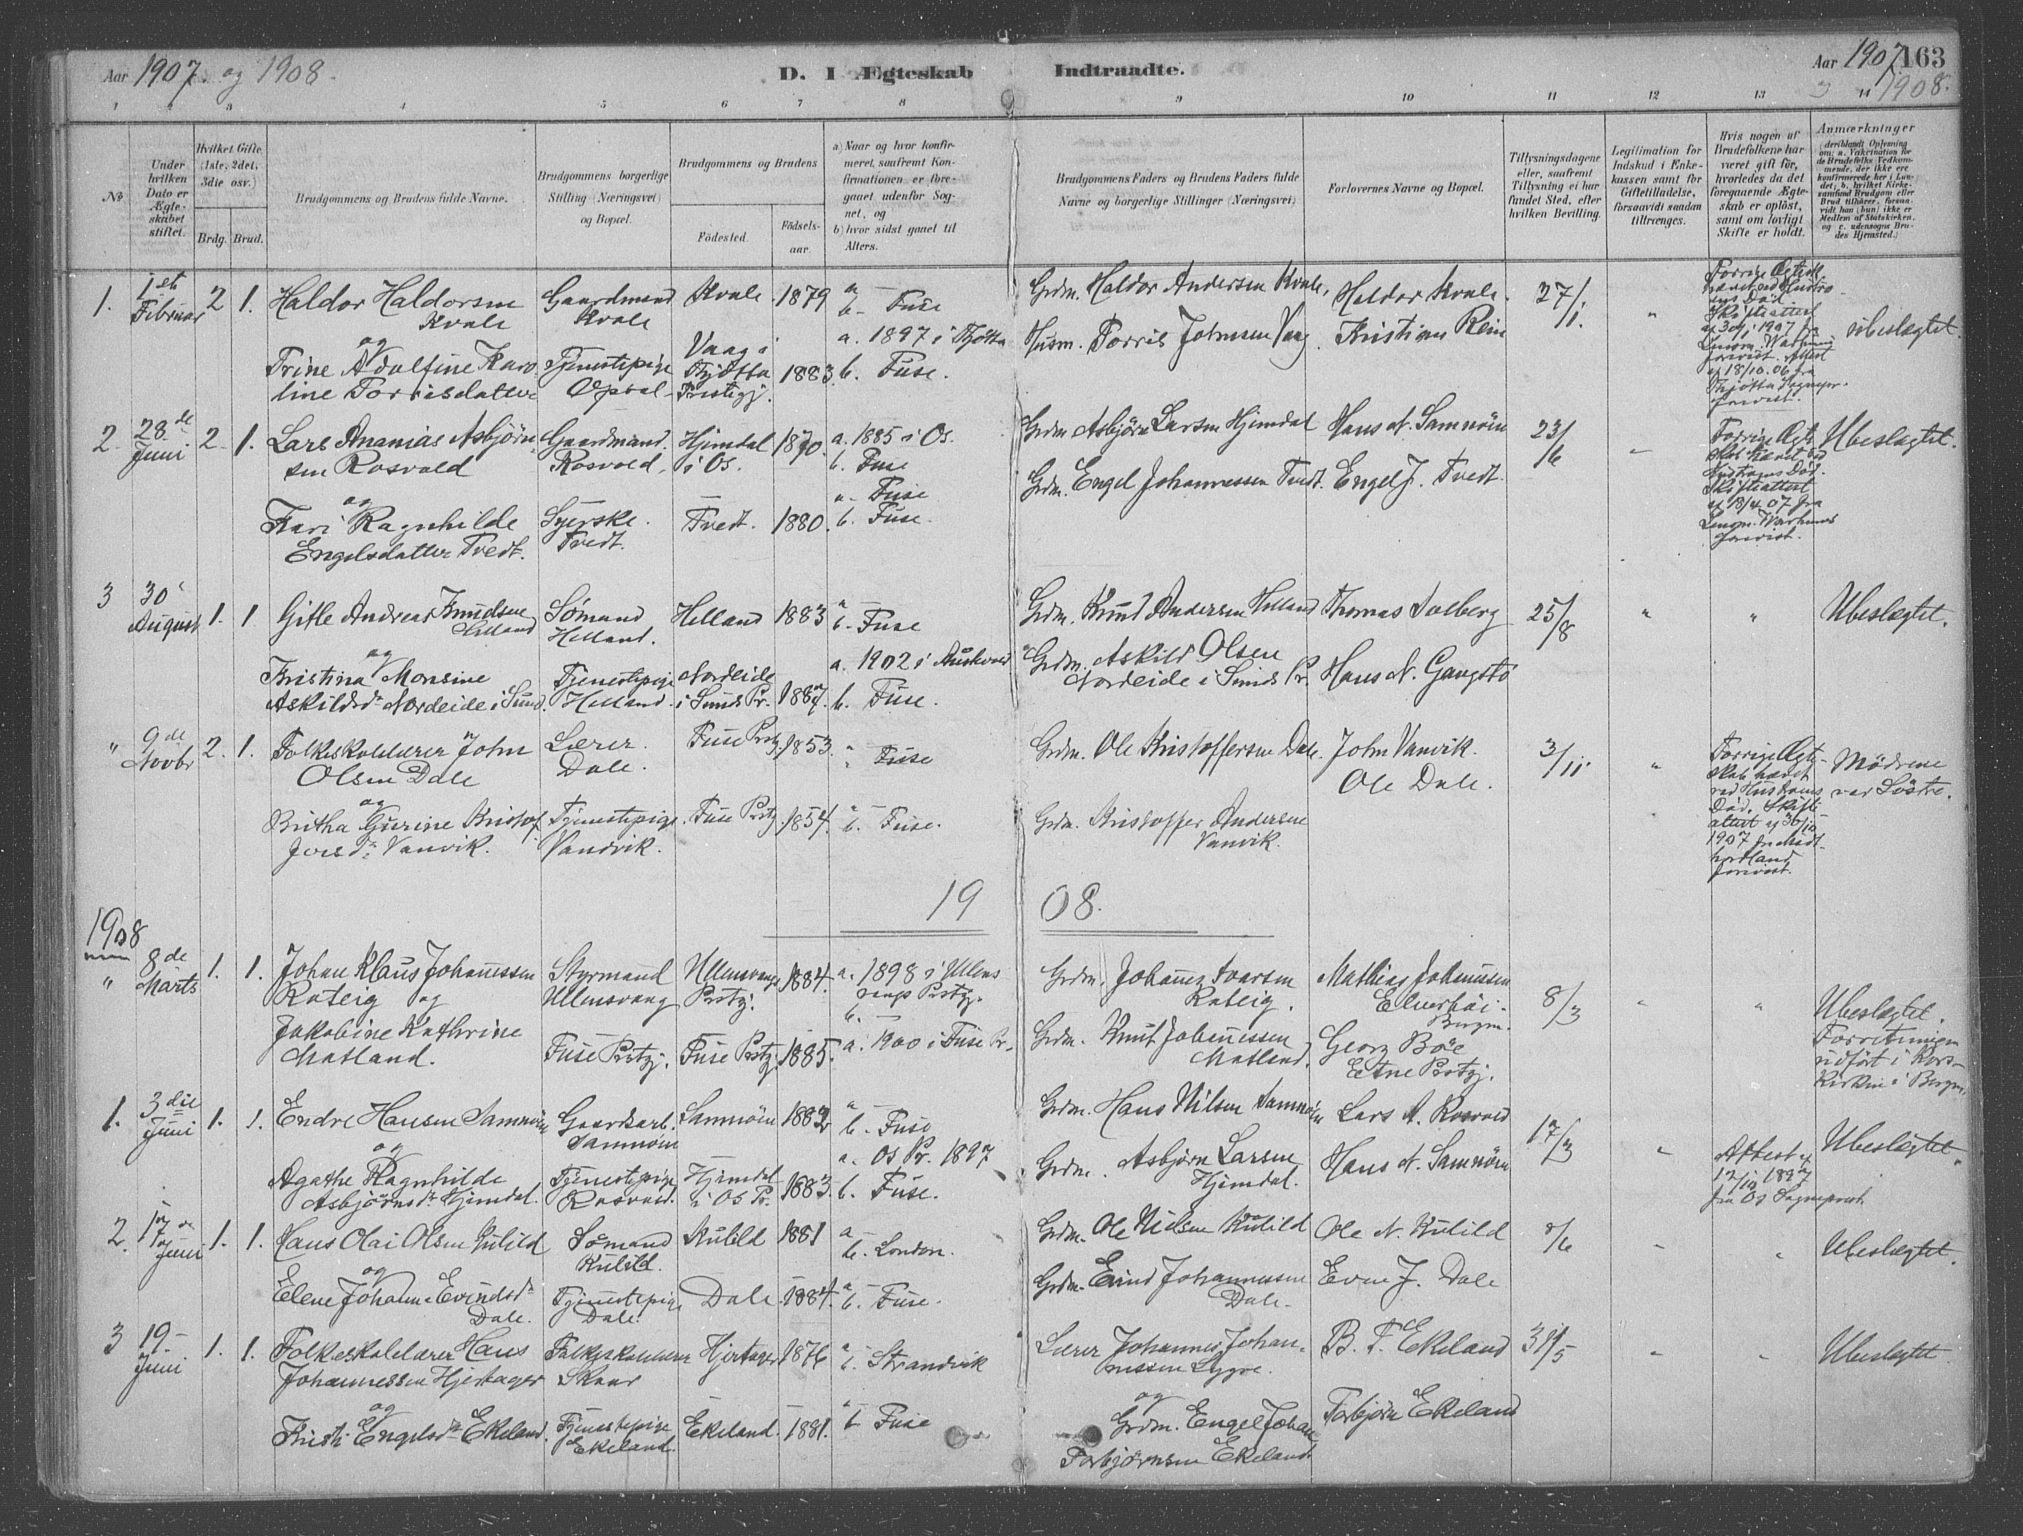 Aar 1907 og 1908.
D. I Ægteskab Indtraadte.
Aar 1907 163
1908.
1 2 3 4 5 6 7 8 9 10 11 12 13 14
No
Under hvilken Dato er Ægteskabet stiftet.
Hvilket Gifte (1ste, 2det, 3die osv.)
Brdg. Brud.
Brudgommens og Brudens fulde Navne.
Brudgommens borgerlige Stilling (Næringsvei) og Bopæl.
Brudgommens og Brudens
Fødested. Fødselsaar.
a) Naar og hvor konfirmeret, saafremt Konfirmationen er foregaaet udenfor Sognet, og
b) hvor sidst gaaet til Alters.
Brudgommens Faders og Brudens Faders fulde Navne og borgerlige Stillinger (Næringsvei)
Forlovernes Navne og Bopæl.
Tillysningsdagene eller, saafremt Tillysning ei har fundet Sted, efter hvilken Bevilling.
Legitimation for Indskud i Enkekassen samt for Giftetilladelse, forsaavidt saadan tiltrænges.
Hvis nogen af Brudefolkene har været gift før, hvorledes da det foregaaende Ægteskab er opløst, samt om lovligt Skifte er holdt.
Anmærkninger (deriblandt Oplysning om: a. Vakcination for de Brudefolks Vedkommende, der ikke ere konfirmerede her i Landet; b. hvilket Kirkesamfund Brudgom eller Brud tilhører, forsaavidt han (hun) ikke er Medlem af Statskirken, og c. udensogns Brudes Hjemsted.)
1. 1ste Februar 2 1. Haldor Haldorsen Kvale
Gaardmand Kvale
Kvale 1879 a — b. Fuse
Grdm. Haldor Andersen Kvale,
Haldor Kvale.
27/1. "
og Trine Adolfine Karoline Torrisdatter
Tjenestepige Opdal
Vaag i Tjøtta Prestegj. 1883.
a. 1897 i Tjøtta b. Fuse.
Husm. Torris Johnsen Vaag.
Kristian Rein
Forrige Ægtesk. hævet ved Hustruens Død. Skifteattest
Ubeslægtet.
2. 28de Juni 2. 1. Lars Ananias Asbjørnsen Rosvold
Gaardmand. Rosvold.
Hjimdal i Os. 1870.
a. 1885 i Os. b. Fuse
Grdm. Asbjørn Larsen Hjimdal
Hans N. Samnøin
23/6
og Kari Ragnhilde Engelsdatter Tvedt.
Syerske. Tvedt.
Tvedt. 1880.
a. Fuse b. Fuse.
Grdm. Engel Johannessen Tvedt.
Engel J. Tvedt.
Forrige Ægteskab hævet ved Hustruens Død. Skifteattest af 18/4 07 fra
Ubeslægtet.
3 30 August 1. 1 Gitle Andreas Knudsen Helland
Sømand Helland.
Helland 1883 a b. Fuse
Grdm. Knud Andersen Helland
Thomas Solberg
25/8 " "
Ubeslægtet.
og Kristina Monsine Askildsdr Nordeide i Sund.
Tjenestepige Helland.
Nordeide i Sunds Pr. 1887.
a. 1902 i Austevold b. Fuse.
Grdm. Askild Olsen Nordeide i Sunds Pr.
Hans N. Gangstø
" 9de Novbr 2. 1. Folkeskolelærer John Olsen Dale
Lærer. Dale.
Fuse Prstgj. 1853. Fuse
Grdm. Ole Kristoffersen Dale.
John Vanvik. Ole Dale.
3/11. "
og Britha Gurine Kristofforsdr Vanvik.
Tjenestepige. Vandvik.
Fuse Prstgj. 1854. a b. Fuse.
Grdm. Kristoffer Andersen Vanvik.
Forrige Ægteskab hævet ved Hustruens Død. Skifteattest af 30/10 1907 fra Midthordland Sorenskr.
Mødrene var Søstre.
19 08.
1908
" 8de Marts 1. 1. Johan Klaus Johannessen Rateig og
Styrmand Ullensvang
Ullensvangs Prstgj. 1884.
a. 1898 i Ullensvangs Prstgj. b. —
Grdm. Johannes Ivarsen Rateig.
Mathias Johannesen Elverhøi. Bergen.
8/3 " "
Ubeslægtet. Forretningen udført i Korskirken i Bergen.
Jakobine Kathrine Matland.
Fuse Prstgj. Fuse Prstgj. 1885. a. 1900 i Fuse Pr.
Grdm. Knut Johannessen Matland.
Georg Bøe Etne Prstgj.
1. 3die Juni 1. 1. Endre Hansen Samnøin
Gaardarb. Samnøin
Samnøin 1882 a — b. Fuse
Grdm. Hans Nilsen Samnøin
Lars A. Rosvold
17/3
og Agathe Ragnhilde Asbjørnsdr Hjimdal.
Tjenestepige Rosvold.
Hjimdal i Os Pr. 1883.
a. Os Pr. 1897 b. Fuse.
Grdm. Asbjørn Larsen Hjimdal.
Hans N. Samnøin
Attest af 12/10 1897 fra Os Sogneprest
Ubeslægtet.
2. 17de Juni 1. 1. Hans Olai Olsen Kulild
Sømand Kulild.
Kulild 1881 a b. London.
Grdm. Ole Nielsen Kulild
Ole N. Kulild
8/6
Ubeslægtet.
og Elene Johanne Evindsdr Dale.
Tjenestepige Dale.
Dale. 1884. a b. Fuse.
Grdm. Evind Johannessen Dale.
Even J. Dale
3 19. Juni 1. 1. Folkeskolelærer Hans Johannessen Hjertager
Folkeskolelærer Skaar
Hjertager 1876 a b. Strandvik
Lærer Johannes Johannessen Lygre.
B. T. Ekeland
31/5
Ubeslægtet
og Kristi Engelsdr Ekeland.
Tjenestepige Ekeland
Ekeland. 1881. a b Fuse
og Grdm. Engel Johan Torbjørnsen Ekeland.
Torbjørn Ekeland